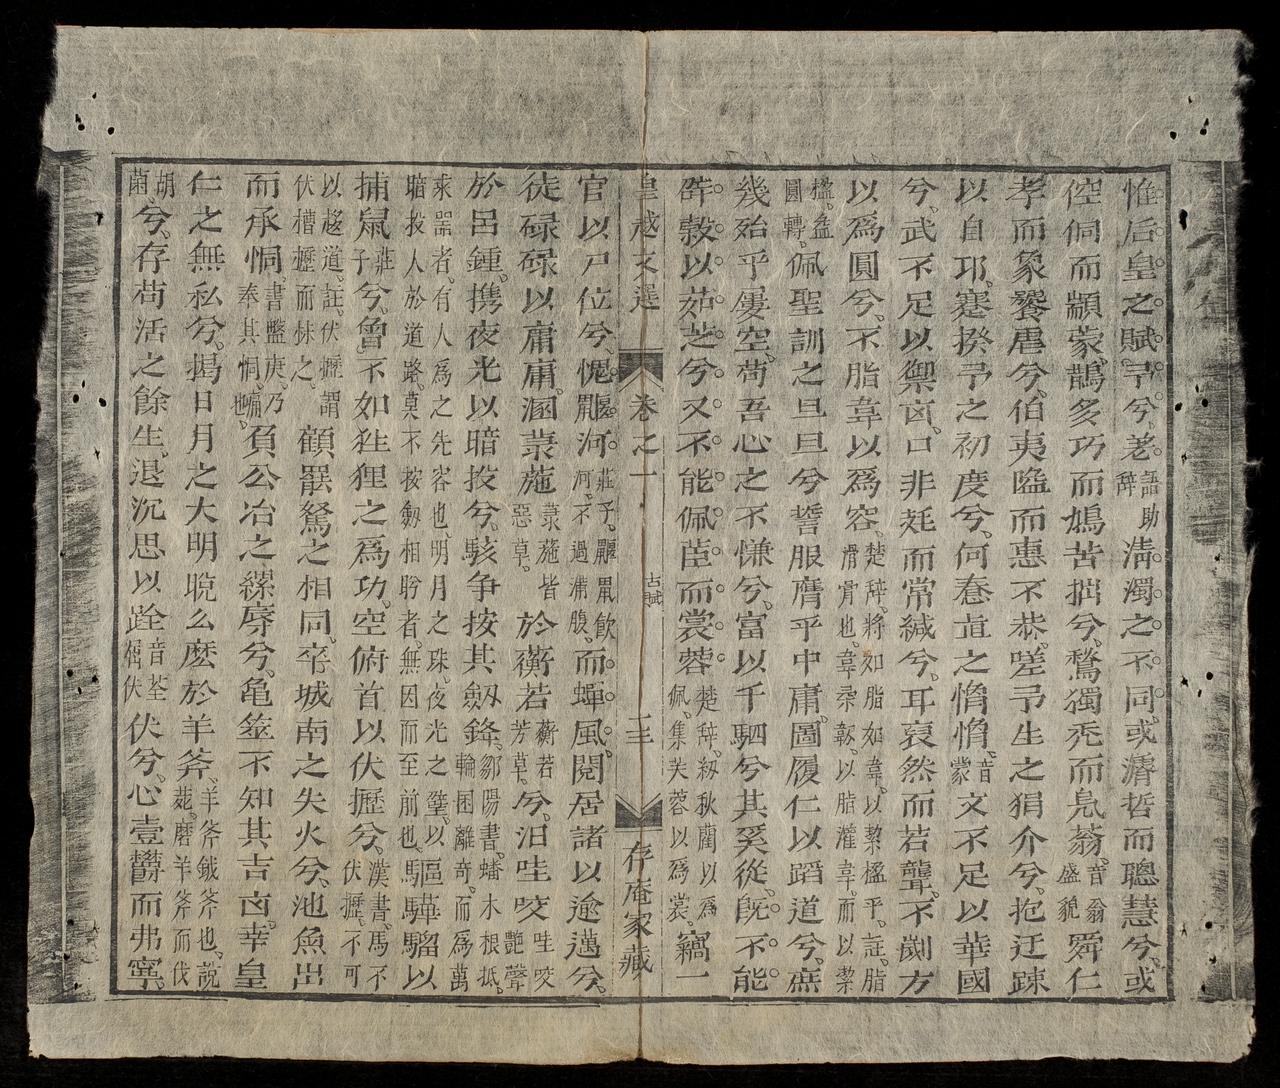 惟后皇之賦予兮老語助辭淸濁之不同或濬哲而聰慧兮或
倥侗而顓蒙鵲多巧而鳩苦拙兮鶖獨禿而鳧蓊音翁盛貌舜仁
孝而象饕虐兮伯夷隘而惠不恭嗟予生之狷介兮抱迂踈
以自邛蹇揆予之初度兮何惷直之愲愲音蒙文不足以華國
兮武不足以禦卤口非瓩而常緘兮耳裒然而若聾不劌方
以爲圓兮不脂韋以爲容楚辞將如脂如韋以絜楹乎註脂滑膏也韋柔韌以脂灌韋而以絜
楹益圓轉佩聖訓之旦旦兮誓服膺乎中庸圖履仁以蹈道兮庶
幾殆乎屢空苟吾心之不慊兮富以千駟兮其奚從旣不能
辥榖以茹芝兮又不能佩茝而裳蓉楚辞紉秋蘭以爲佩集芙蓉以爲裳竊一
皇越文選 卷之一 古賦 十三 存庵家藏
官以尸位兮愧鼴河莊子鼴鼠飮河不過滿腹而蟬風閱居諸以逾邁兮
徒碌碌以庸庸溷菉葹菉葹皆惡草於蘅若蘅若芳草兮汨哇咬哇咬艷聲
於呂鍾携夜光以暗投兮駭争按其劔鋒鄒陽書蟠木根抵輪囷離奇而爲萬
乘器者有人爲之先容也明月之珠夜光之璧以暗投人於道路莫不按劔相盻者無因而至前也驅驊騮以
捕鼠莊子兮曾不如狌狸之爲功空俯首以伏攊兮漢書馬不伏攊不可
以趍道註伏攊謂伏槽攊而秣之顧罷駑之相同卒城南之失火兮池魚出
而承恫書盤庚乃奉其恫痛也負公冶之縲辱兮亀筮不知其吉卤幸皇
仁之無私兮揭日月之大明晥么麽於羊斧羊斧鉞斧也說菀磨羊斧而伐
胡菌兮存苟活之餘生退沉思以跧音荃倔伏伏兮心壹欝而弗寧